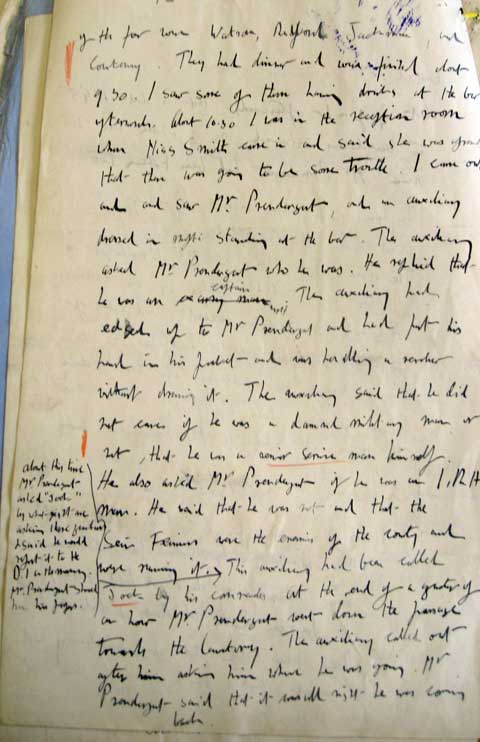 of the four were Watson, Redford, Jackson, and
Courtenay. They had dinner and were finished about
9.30. I saw some of them having drinks at the bar
afterwards. About 10.30 I was in the reception room
when Miss Smith came in and said she was afraid
that there was going to be some trouble. I came out
and saw Mr Prendergast, and an auxiliary
dressed in mufti standing at the bar. The auxiliary
asked Mr Prendergast who he was. He replied that
he was an captain The auxiliary had
edged up to Mr Prendergast and had put his
hand in his pocket and was handling a revolver
without drawing it. The auxiliary said that he did
not care if he was a damned military man or
not, that he was a senior service man himself.
He also asked Mr Prendergast if he was an I.R.A
man. He said that he was not and that the
Sein Feiners were the enemies of the country and
were ruining it. This auxiliary had been called
Jock by his comrades. at the end of a quarter of
an hour Mr Prendergast went down the passage
towards the lavatory. The auxiliary called out
after him asking him where he was going. Mr
Prendergast said that it was all right he was coming
back.
about this time
Mr Prendergast
asked "Jock"
by what right
asking these questions
& said he would
report it to the
D.I in the morning.
Mr Prendergast
him his